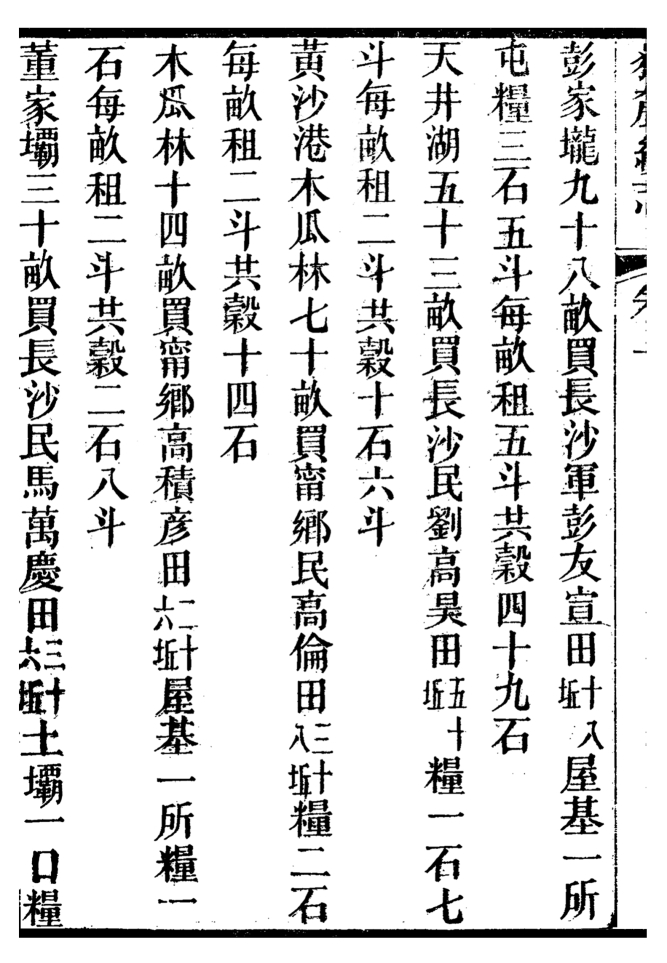 彭家壠九十八畝買長沙軍彭友宣田十八坵屋基一所
屯糧三石五斗每畝租五斗共穀四十九石
天井湖五十三畝買長沙民劉高昊田五十坵糧一石七
斗每畝租二斗共穀十石六斗
黃沙港木瓜林七十畝買甯鄉民高倫田三十八坵糧二石
每畝租二斗共穀十四石
木瓜林十四畝買甯鄉高積彥田二十六坵屋基一所糧一
石每畝租二斗共穀二石八斗
董家壩三十畝買長沙民馬萬慶田三十六坵土壩一口糧